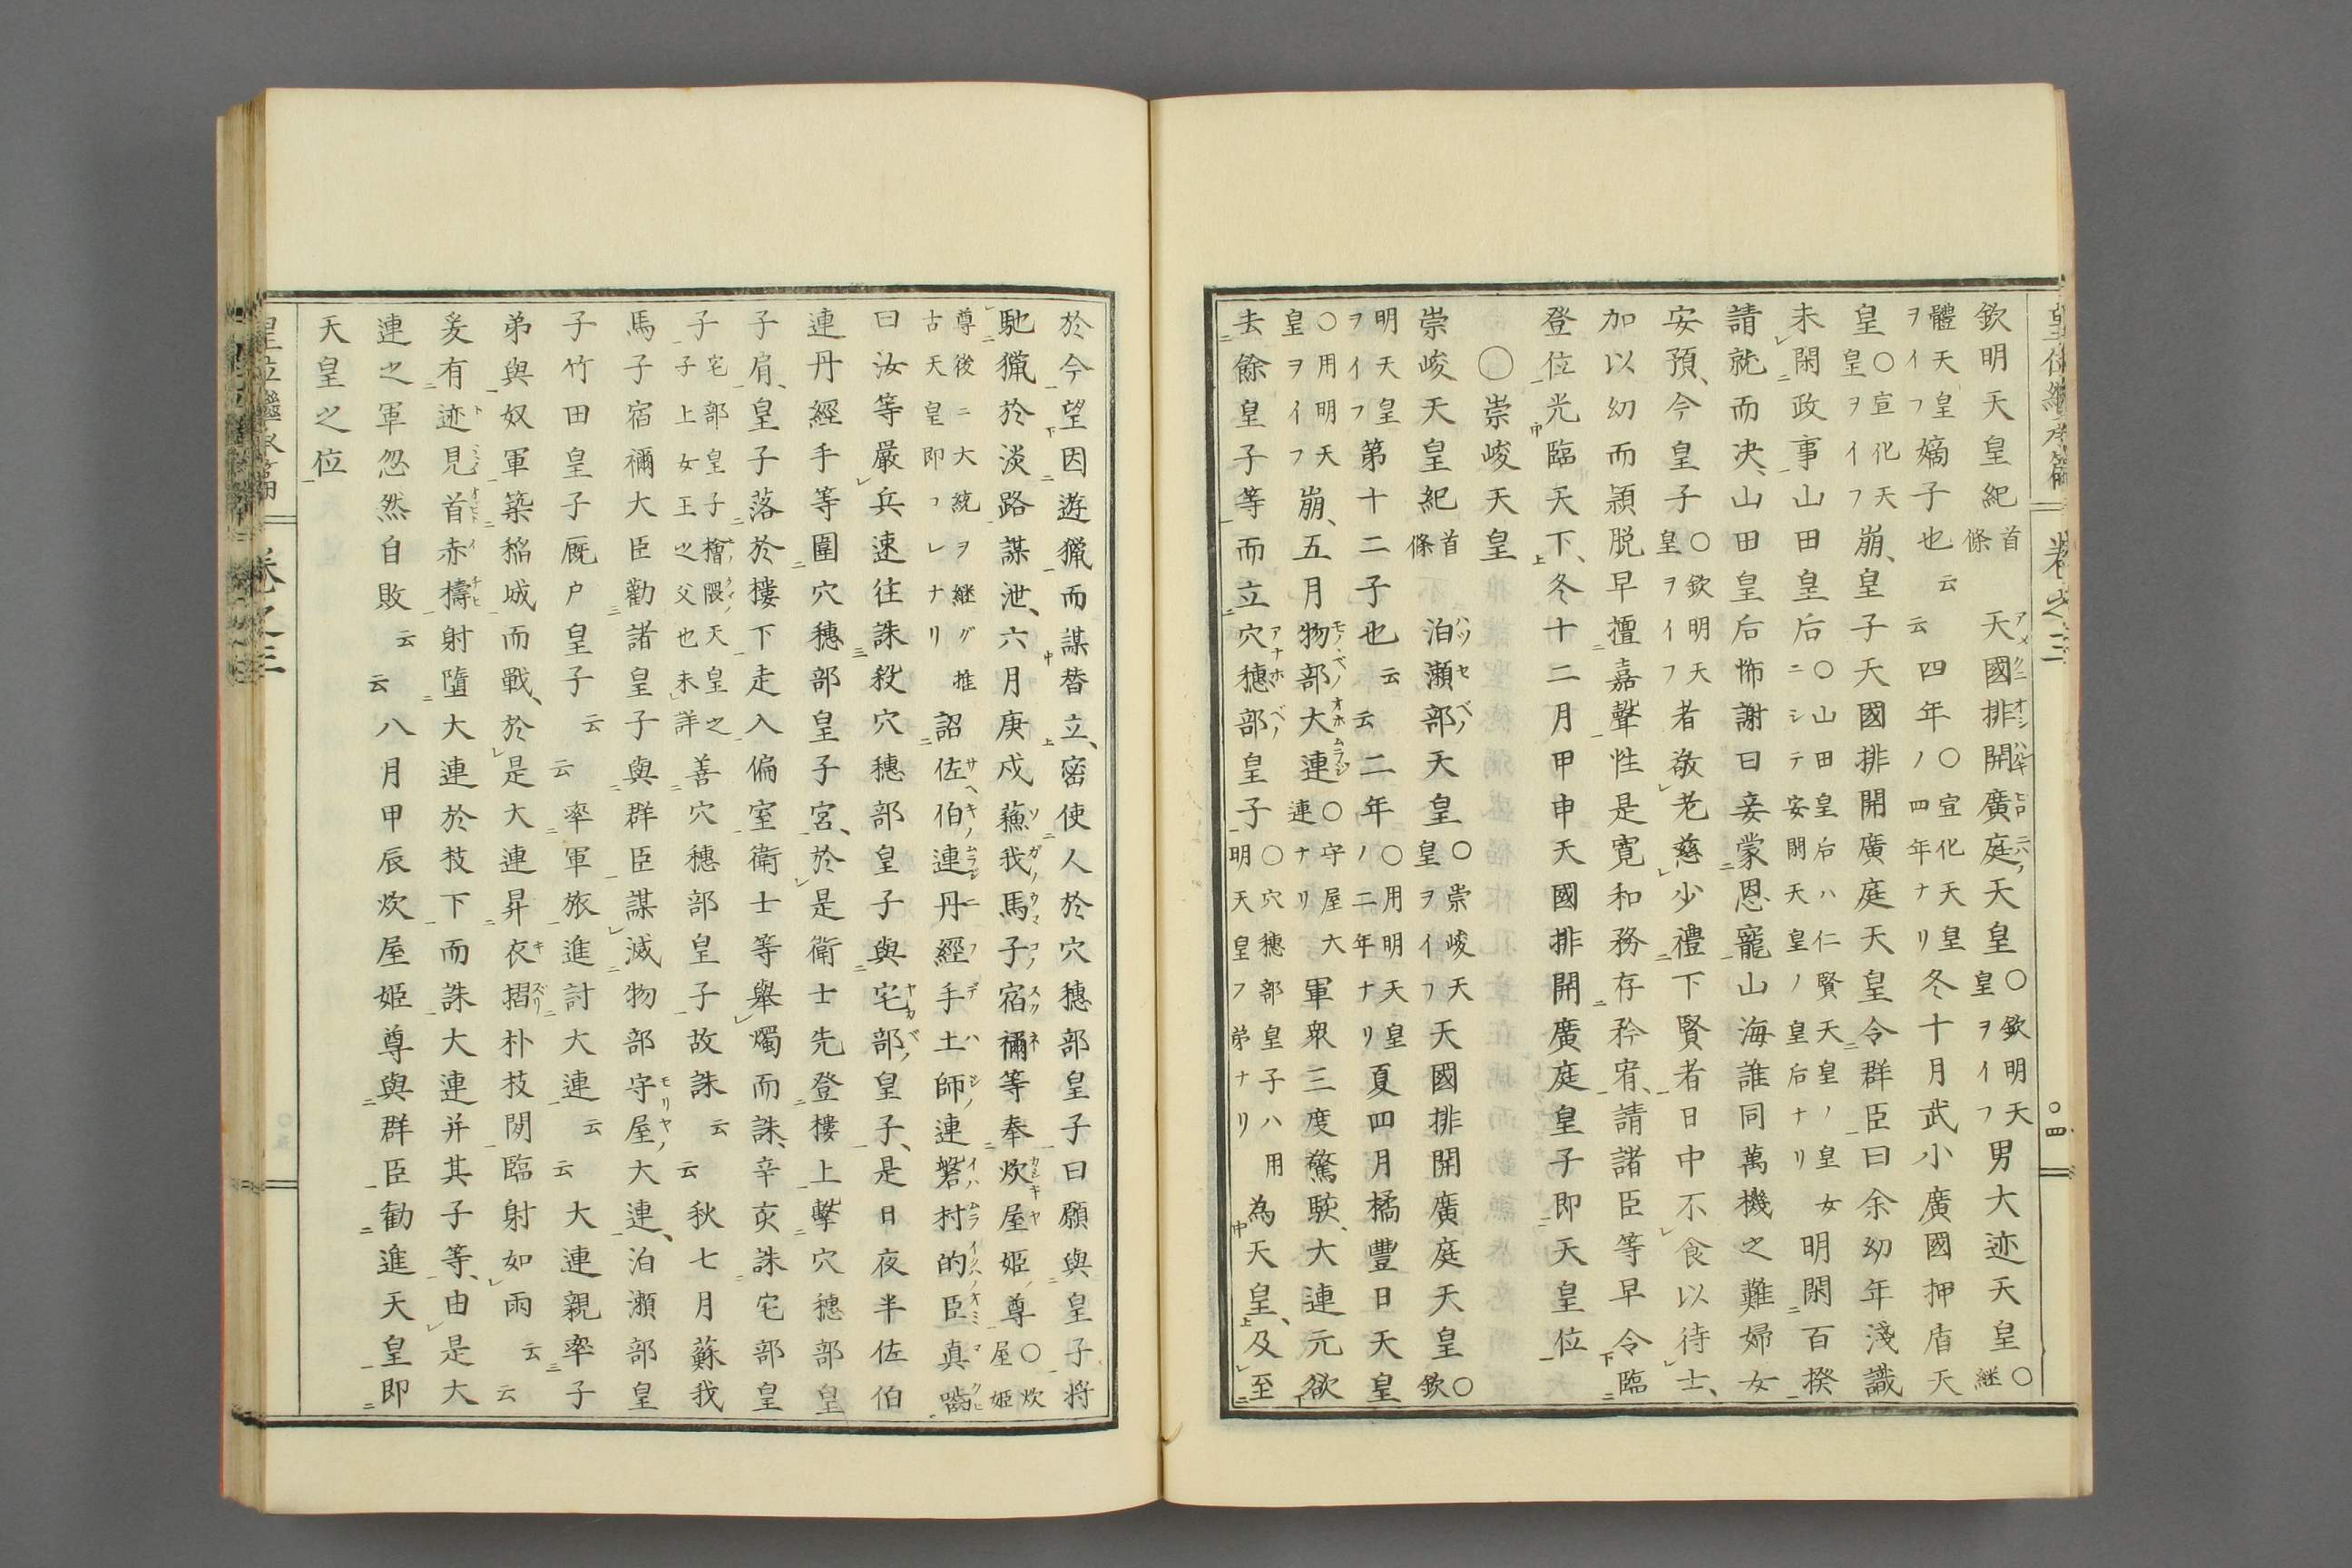 皇位繼承篇 卷之三 〇四
欽明天皇紀首條 天國排開廣庭天皇〇欽明天皇ヲイフ男大迹天皇〇継
體天皇ヲイフ嫡子也云云四年〇宣化天皇ノ四年ナリ冬十月武小廣國押盾天
皇〇宣化天皇ヲイフ崩、皇子天國排開廣庭天皇令群臣曰余幼年淺識
未閑政事山田皇后〇山田皇后ハ仁賢天皇ノ皇女ニシテ安閑天皇ノ皇后ナリ明閑百揆
請就而决、山田皇后怖謝曰妾蒙恩寵山海誰同萬機之難婦女
安預、今皇子〇欽明天皇ヲイフ者敬老慈少禮下賢者日中不食以待士、
加以幼而頴脱早擅嘉聲性是寛和務存矜宥、請諸臣等早令臨
登位光臨天下、冬十二月甲申天國排開廣庭皇子即天皇位
〇崇峻天皇
崇峻天皇紀首條 泊瀬部天皇〇崇峻天皇ヲイフ天國排開廣庭天皇〇欽
明天皇ヲイフ第十二子也云云二年〇用明天皇ノ二年ナリ夏四月橘豐日天皇
〇用明天皇ヲイフ崩、五月物部大連〇守屋大連ナリ軍衆三度驚駭、大連元欲
去餘皇子等而立穴穗部皇子〇穴穗部皇子ハ用明天皇ノ弟ナリ為天皇、及至
於今望因遊獵而謀替立、密使人於穴穗部皇子曰願與皇子將
馳獵於淡路謀泄、六月庚戍蘓我馬子宿禰等奉炊屋姫尊〇炊屋姫
尊後ニ大統ヲ継グ推古天皇即フレナリ詔佐伯連丹經手土師連磐村的臣真囓
曰汝等嚴兵速往誅殺穴穗部皇子與宅部皇子、是日夜半佐伯
連丹經手等圍穴穗部皇子宮、於是衛士先登樓上擊穴穗部皇
子肩、皇子落於樓下走入偏室衛士等舉燭而誅、辛亥誅宅部皇
子宅部皇子檜隈天皇之子上女王之父也未詳善穴穗部皇子故誅云云秋七月蘇我
馬子宿禰大臣勸諸皇子與群臣謀滅物部守屋大連、泊瀬部皇
子竹田皇子厩戸皇子云云率軍旅進討大連云云大連親率子
弟與奴軍築稲城而戰、於是大連昇衣摺朴枝閒臨射如雨云云
爰有迹見首赤檮射墮大連於枝下而誅大連并其子等、由是大
連之軍忽然自敗云云八月甲辰炊屋姫尊與群臣勧進天皇即
天皇之位
皇位繼承篇 卷之三